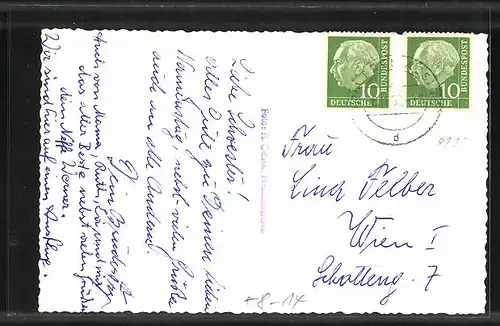 Liebe Schwester!
Alles Gute zu Deinem lieben
Namenstag nebst vielen Grüßen
auch an alle Andern.
Dein Bruder
Auch von Mama,
das aller Beste nebst vielen Grüßen
dein Neffe Werner.
Wir sind hier auf einem Ausflug.
10 DEUTSCHE BUNDESPOST
10 DEUTSCHE BUNDESPOST
d
Frau
Lina Felber
Wien I
Schotteng. 7
+8-14